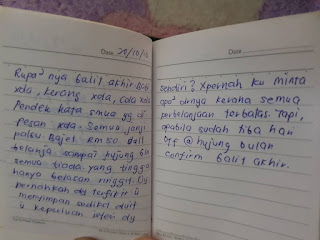 Date 20/10/
Rupa² nya balit akhir
xda, kerang xda, cola xda
Pendek kata smua yg di
pesan xda. Semua janji
palsu Bajet RM50 duit
belanja sampai hujung bln
semua tiada yang tinggal
hanya belasan ringgit.
pernahkah dy terfikir u
menyimpan sedikit duit
u keperluan isteri dy
Date
Sendiri? Xpernah ku minta
apa² dirnya kerana semua
perbelanjaan terbatas. Tapi,
apabila sudah tiba hari
Off @ hujung bulan
confirm balit akhir.